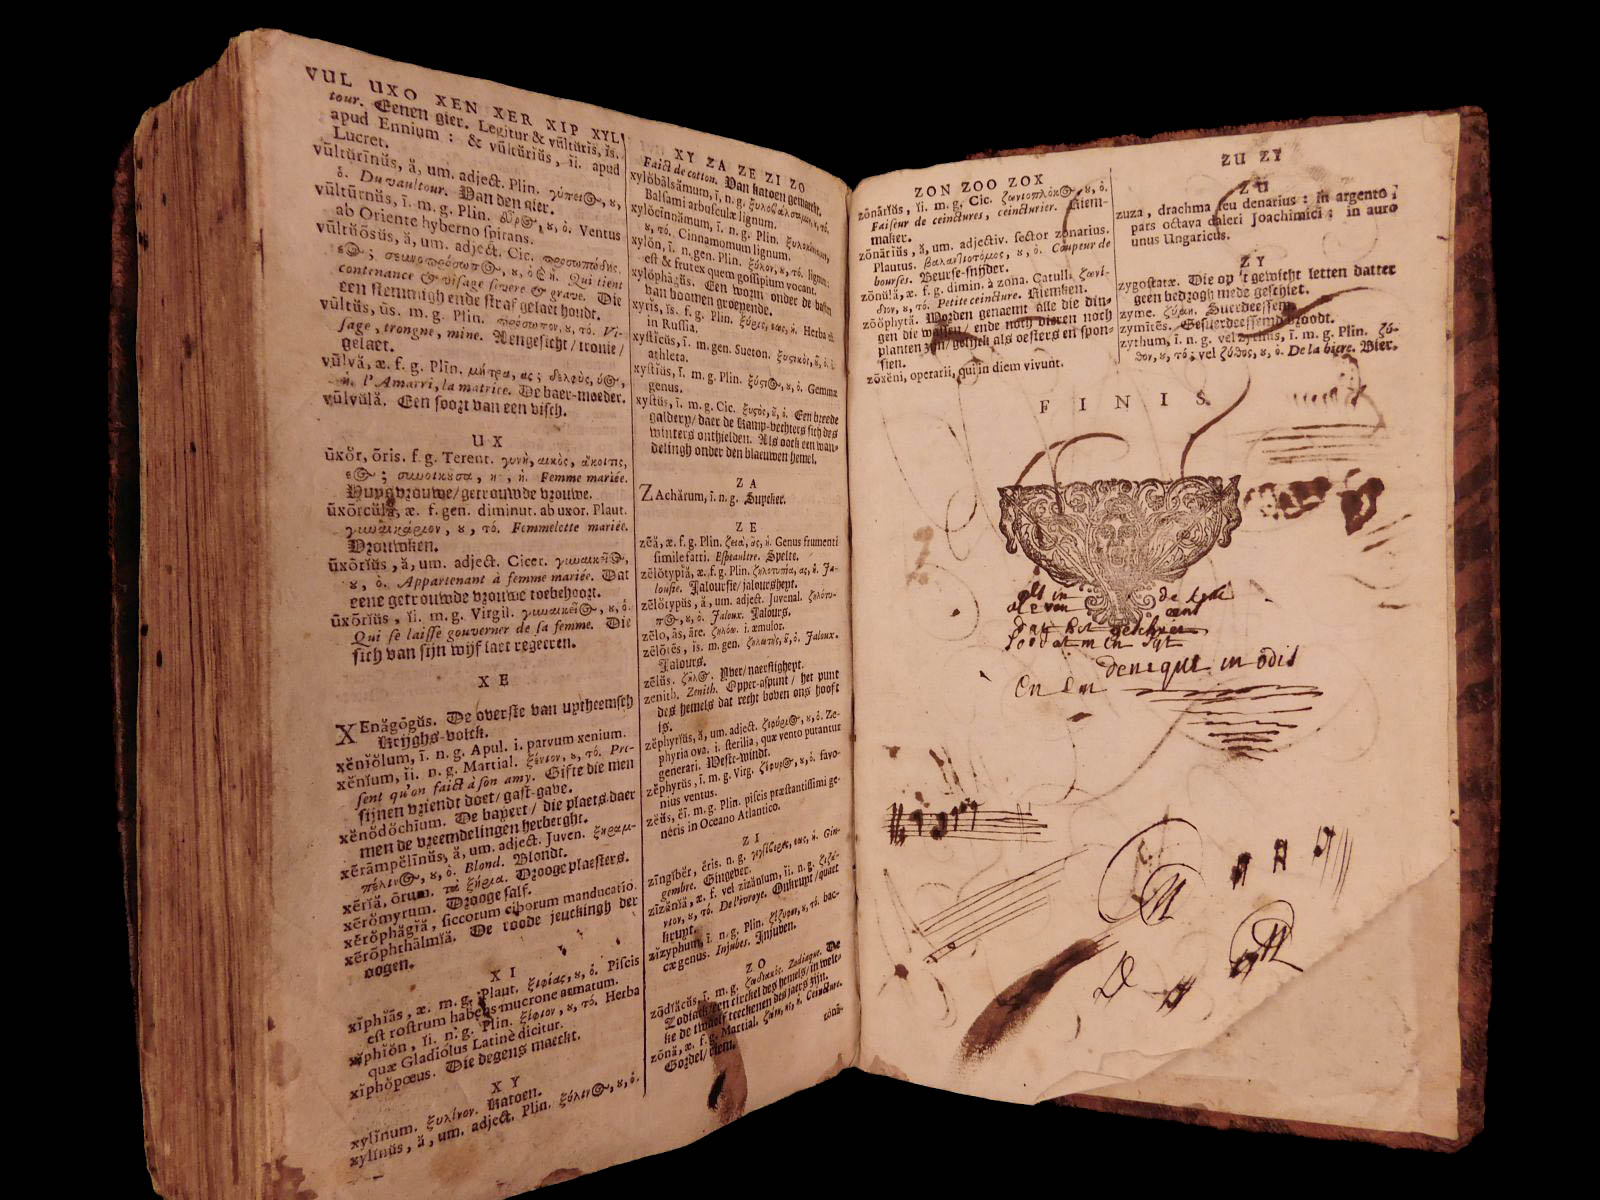 VUL UXO XEN XER XIP XYL
tour. Eenen gier. Legitur & vŭltŭrĭs, ĭs.
apud Ennium : & vŭltŭrĭŭs, ĭi. apud
Lucret.
vŭltŭrīnŭs, ă, um. adject. Plin.
ó. Du vaultour. Van den gier.
vŭltŭrnŭs, ī. m. g. Plin. Ventus
ab Oriente hyberno spirans.
vŭltŭōsŭs, ă, um. adject. Cic.
Qui tient
contenance & visage severe & grave. Die
een stemmigh ende straf gelaet houdt.
vŭltŭs, ūs. m. g. Plin. πρόσωπον, ȣ, τό. Vi-
sage, trongne, mine. Aengesicht / tronie /
gelaet.
vŭlvă, æ. f. g. Plin. μήτρα, ας ; δελφὺς,
l'Amarri, la matrice. De baer-moeder.
vŭlvŭlă. Een soort van een visch.
UX
ŭxŏr, ōris. f. g. Terent. γυνὴ, αικὸς, ἄκοιτις,
Femme mariée.
Huysvrouwe / getrouwde vrouwe.
ŭxōrcŭlă, æ. f. gen. diminut. ab uxor. Plaut.
γυναικάριον, ȣ, τό. Femmelette mariée.
Vrouwken.
ŭxōrĭŭs, ă, um. adject. Cicer.
ȣ, ὁ. Appartenant à femme mariée. Dat
eene getrouwde vrouwe toebehoort.
ŭxōrĭŭs, ĭi. m. g. Virgil.
Qui se laisse gouverner de sa femme. Die
sich van sijn wijf laet regeeren.
XE
XEnăgōgŭs. De overste van uytheemsch
krijghs-volck.
xĕnĭŏlum, ī. n. g. Apul. i. parvum xenium.
xĕnĭum, ĭi. n. g. Martial. ξένιον, ȣ, τό. Pre-
sent qu'on faict à son amy. Gifte die men
sijnen vriendt doet / gast-gave.
xĕnŏdŏchīum. De bayert / die plaets daer
men de vreemdelingen herberght.
xĕrămpĕlĭnŭs, ă, um. adject. Juven.
Blond. Blondt.
xērĭă, ōrum. τὰ ξήρια. Drooge plaesters.
xērŏmyrum. Drooge salf.
xērŏphăgĭă, siccorum ciborum manducatio.
xērŏphthălmĭă. De roode jeuckingh der
oogen.
XI
xĭphĭăs, æ. m. g. Plaut. ξιφίας, ȣ, ὁ. Piscis
est rostrum habens mucrone armatum.
xĭphĭŏn, ĭi. n. g. Plin. ξίφιον, ȣ, τό. Herba
quæ Gladiolus Latinè dicitur.
xĭphŏpœus. Die degens maeckt.
XY
xylĭnum. ξυλίνον. Katoen.
xylĭnŭs, ă, um. adject. Plin.
XY ZA ZE ZI ZO
Faict de cotton. Van katoen gemaekt.
xylŏbălsămum, ī, n. g.
Balsami arbusculæ lignum.
xylŏcĭnnămum, ī. n. g. Plin.
ȣ, τό. Cinnamomum lignum.
xylŏn, ī. n. gen. Plin. ξύλον, ȣ, τό. lignum:
est & frutex quem gossipium vocant.
xylŏphăgŭs. Een worm onder de basten
van boomen groeyende.
xyrĭs, ĭs. f. g. Plin.
in Russia.
xystĭcŭs, ī. m. gen. Sueton.
athleta.
xystĭŭs, ī. m. g. Plin. Gemmæ
genus.
xystŭs, ī. m. g. Cic. Een breede
galdery / daer de kamp-vechters sich des
winters onthielden. Als oock een wan-
delingh onder den blaeuwen hemel.
ZA
ZAchărum, ī. n. g. Suycker.
ZE
zēă, æ. f. g. Plin. Genus frumenti
simile farri. Espeaultre. Spelte.
zēlŏtypĭă, æ. f. g. Plin. ζηλοτυπία, ας, ἡ. Ja-
lousie. Jaloursie / jaloursheyt.
zēlŏtypŭs, ă, um. adject. Juvenal.
Jaloux. Jalours.
zēlo, ās, āre. i. æmulor.
zēlōtēs, ĭs. m. gen. Jaloux.
Jalours.
zēlŭs. Yver / naerstigheyt.
zenith. Zenith. Opper-aspunt / het punt
des hemels dat recht boven ons hooft
is.
zĕphyrĭŭs, ă, um. adject. Ze-
phyria ova. i. sterilia, quæ vento putantur
generari. Weste-windt.
zĕphyrŭs, ī. m. g. Virg. favo-
nius ventus.
zēŭs, ĕī. m. g. Plin. piscis præstantissimi ge-
neris in Oceano Atlantico.
ZI
zīngĭbĕr, ĕris. n. g. Gin-
gembre. Gingeber.
zīzănĭă, æ. f. vel zizānĭum, ĭi. n. g.
De l'ivroye. Onkruyt / quaet
kruyt.
zīzyphum, ī. n. g. Plin. ζίζυφον, ȣ, τό. bac-
cæ genus. Injubes. Injuben.
ZO
zōdĭăcŭs, ī. m. g. Zodiaque. De
Zodiack / een circkel des hemels / in welc-
ke de twaelf teeckenen des jaers zijn.
zōnă, æ. f. g. Martial. Ceincture.
Gordel / riem.
zōnā-
ZON ZOO ZOX
zōnārĭŭs, ĭi. m. g. Cic.
Faiseur de ceinctures, ceincturier. Riem-
maker.
zōnārĭŭs, ă, um. adjectiv. sector zonarius.
Plautus. βαλαντιοτόμος, ȣ, ὁ. Coupeur de
bourses. Beurse-snijder.
zōnŭlă, æ. f. g. dimin. à zona. Catull.
τό. Petite ceincture. Riemken.
zōŏphytă. Worden genaemt alle die din-
gen die wassen / ende noch dieren noch
planten zijn / gelijck als oesters en spon-
sien.
zōxĕni, operarii, qui in diem vivunt.
ZU ZY
ZU
zuza, drachma seu denarius : in argento ;
pars octava daleri Joachimici ; in auro
unus Ungaricus.
ZY
zygostatæ. Die op 't gewicht letten datter
geen bedrogh mede geschiet.
zyme. ζύμη. Suerdeessem.
zymītēs. Gesuerdeessemd broodt.
zythum, ī. n. g. vel zythus, ī. m. g. Plin. ζύ-
θον, ȣ, τό ; vel ζύθος, ȣ, ὁ. De la biere. Bier.
FINIS
als in de
van
geschreven
deneque in odis
En den